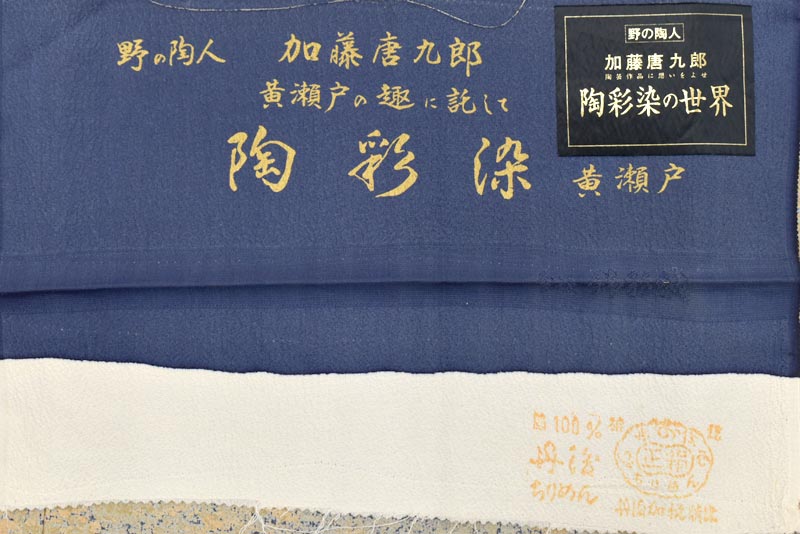 野の陶人 加藤唐九郎
黄瀬戸の趣に託して
陶彩染 黄瀬戸
野の陶人
加藤唐九郎
陶芸作品に想いをよせ
陶彩染の世界
100%
丹後
ちりめん